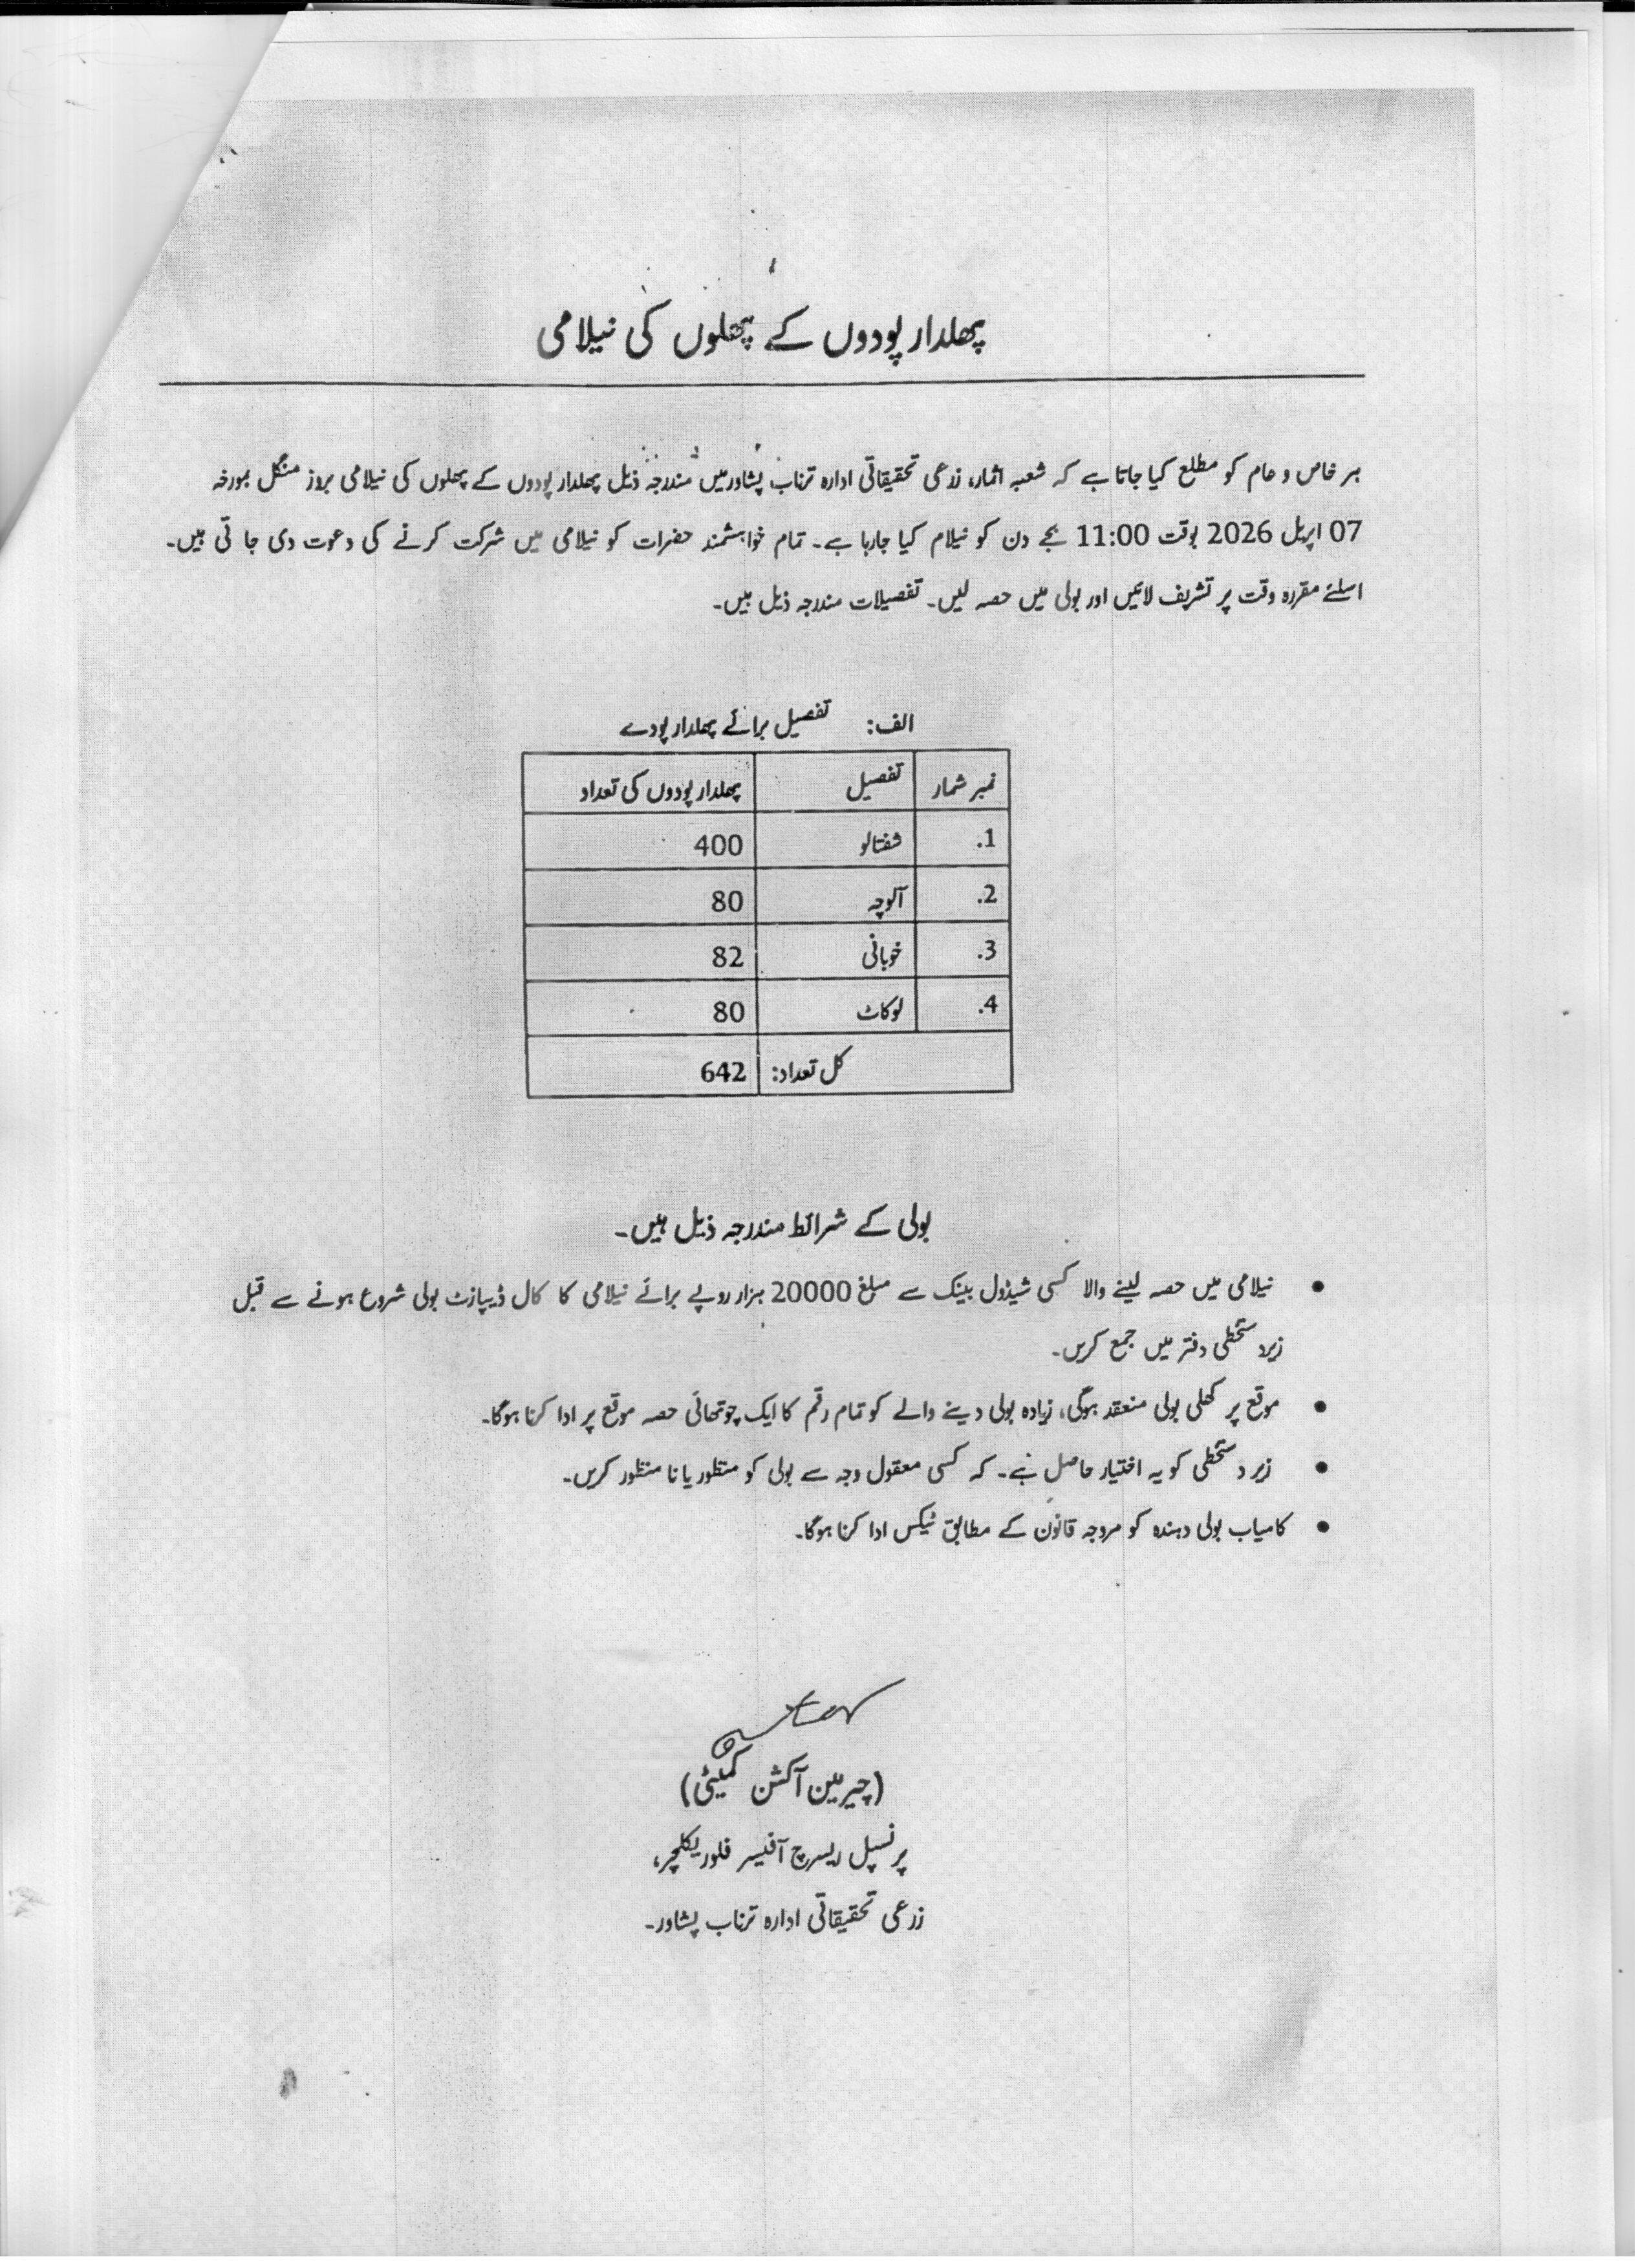 پھلدار پودوں کے پھلوں کی نیلامی
ہر خاص و عام کو مطلع کیا جاتا ہے کہ شعبہ اثمار، زرعی تحقیقاتی ادارہ ترناب پشاور میں مندرجہ ذیل پھلدار پودوں کے پھلوں کی نیلامی بروز منگل بمورخہ
07 اپریل 2026 بوقت 11:00 بجے دن کو نیلام کیا جارہا ہے۔ تمام خواہشمند حضرات کو نیلامی میں شرکت کرنے کی دعوت دی جا تی ہیں۔
اسلئے مقررہ وقت پر تشریف لائیں اور بولی میں حصہ لیں۔ تفصیلات مندرجہ ذیل ہیں۔
الف: تفصیل برائے پھلدار پودے
نمبر شمار تفصیل پھلدار پودوں کی تعداد
1. شفتالو 400
2. آلوچہ 80
3. خوبانی 82
4. لوکاٹ 80
کل تعداد: 642
بولی کے شرائط مندرجہ ذیل ہیں۔
• نیلامی میں حصہ لینے والا کسی شیڈول بینک سے مبلغ 20000 ہزار روپے برائے نیلامی کا کال ڈیپازٹ بولی شروع ہونے سے قبل
زیرد ستخطی دفتر میں جمع کریں۔
• موقع پر کھلی بولی منعقد ہوگی، زیادہ بولی دینے والے کو تمام رقم کا ایک چوتھائی حصہ موقع پر ادا کرنا ہوگا۔
• زیر د ستخطی کو یہ اختیار حاصل ہے۔ کہ کسی معقول وجہ سے بولی کو منظور یا نا منظور کریں۔
• کامیاب بولی دہندہ کو مروجہ قانون کے مطابق ٹیکس ادا کرنا ہوگا۔
(چیرمین آکشن کمیٹی)
پرنسپل ریسرچ آفیسر فلوریکلچر،
زرعی تحقیقاتی ادارہ ترناب پشاور۔